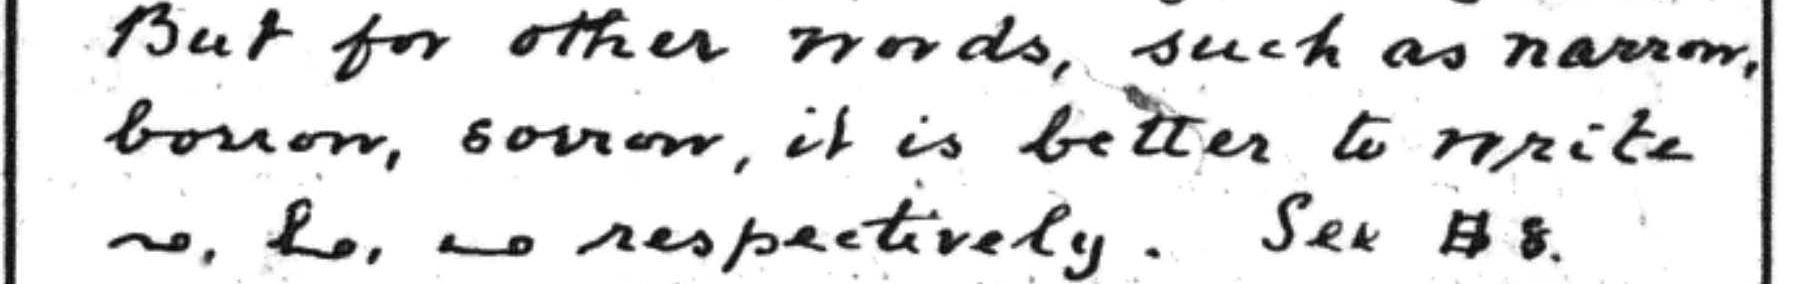 But for other words, such as narrow,
borrow, sorrow, it is better to write
respectively. See § 8.